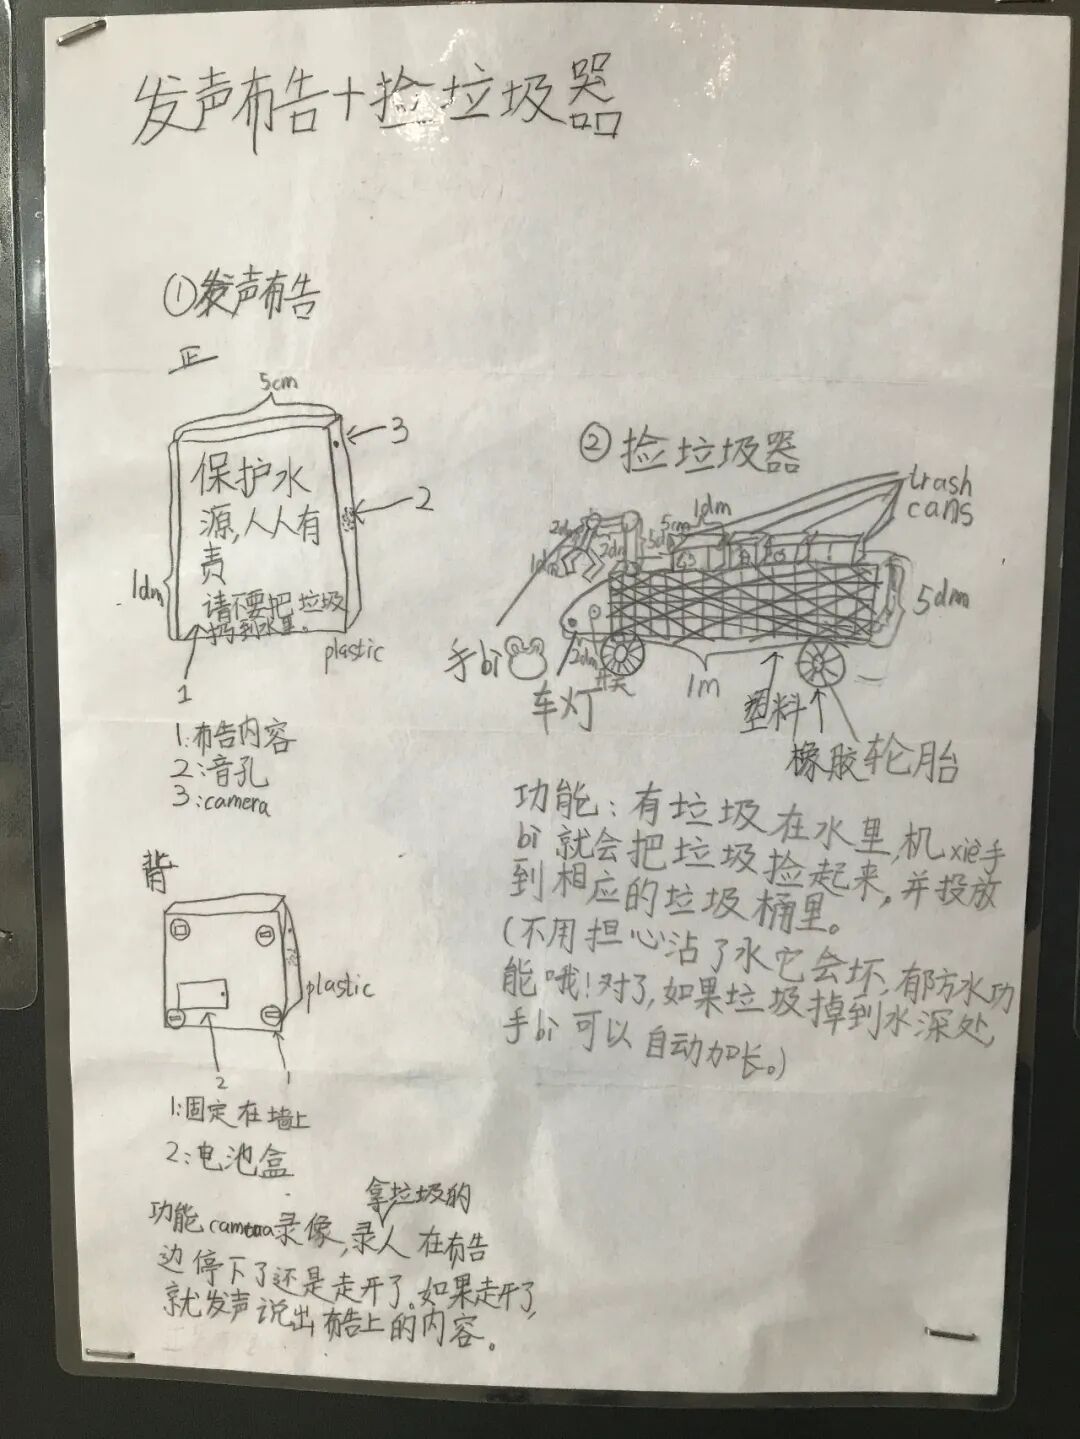 发声布告+捡垃圾器
①发声布告
正
5cm
3
保护水
源,人人有
责
请不要把垃圾
扔到水里。
2
1dm
plastic
1
1:布告内容
2:音孔
3:camera
背
plastic
2
1
1:固定在墙上
2:电池盒
拿垃圾的
功能camera录像,录人在布告
边停下了还是走开了。如果走开了,
就发声说出布告上的内容。
②捡垃圾器
trash
cans
1dm
5cm
2dm
2dm
5dm
1dm
5dm
手bì
2dm
车灯
开关
1m
塑料
橡胶轮胎
功能:有垃圾在水里,机xiè手
bì就会把垃圾捡起来,并投放
到相应的垃圾桶里。
(不用担心沾了水它会坏,有防水功
能哦!对了,如果垃圾掉到水深处,
手bì可以自动加长。)